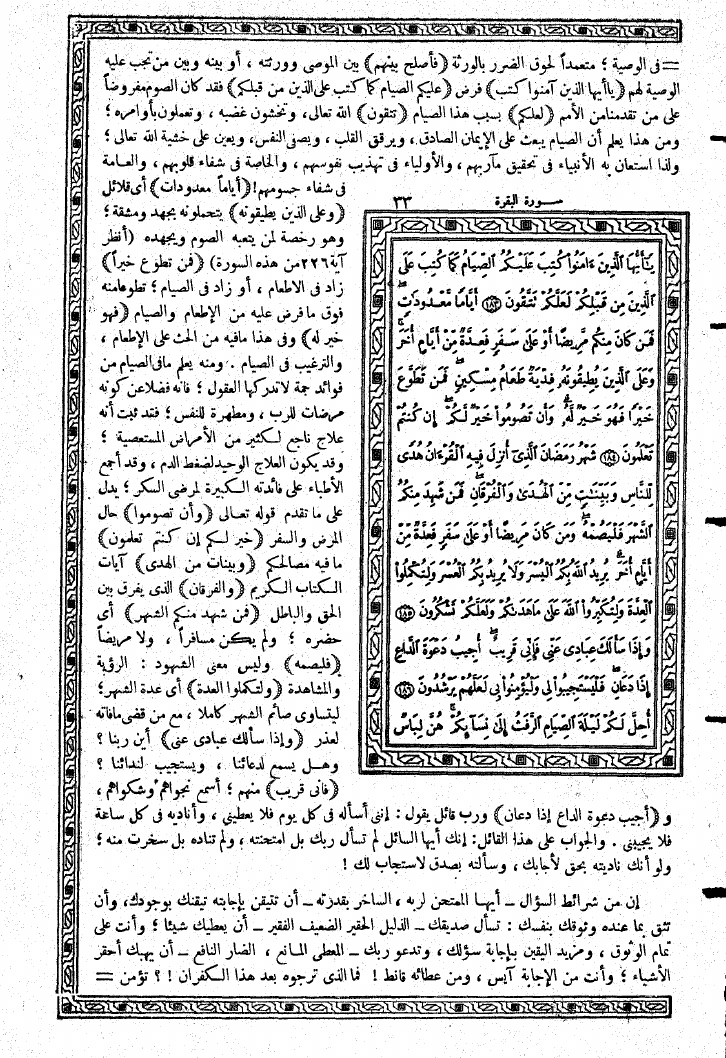 = فى الوصية ؛ متعمداً لحوق الضرر بالورثة (فأصلح بينهم) بين الموصى وورثته ، أو بينه وبين من تجب عليه
الوصية لهم (ياأيها الذين آمنوا كتب) فرض (عليكم الصيام كما كتب على الذين من قبلكم) فقد كان الصوم مفروضاً
على من تقدمنا من الأمم (لعلكم) بسبب هذا الصيام (تتقون) الله تعالى، وتخشون غضبه ، وتعملون بأوامره ؛
ومن هذا يعلم أن الصيام يبعث على الإيمان الصادق. ويرقق القلب ، ويصفى النفس، ويعين على خشية الله تعالى ؛
ولذا استعان به الأنبياء فى تحقيق مآربهم ، والأولياء فى تهذيب نفوسهم ، والخاصة فى شفاء قلوبهم ، والعامة
فى شفاء جسومهم! (أياماً معدودات) أى قلائل
(وعلى الذين يطيقونه) يتحملونه بجهد ومشقة ؛
وهو رخصة لمن يتعبه الصوم ويجهده (أنظر
آية ٢٢٦ من هذه السورة) (فمن تطوع خيراً)
زاد فى الاطعام ، أو زاد فى الصيام ؛ تطوعا منه
فوق ما فرض عليه من الإطعام والصيام (فهو
خير له) وفى هذا ما فيه من الحث على الإطعام ،
والترغيب فى الصيام . ومنه يعلم ما فى الصيام من
فوائد جمة لا تدركها العقول ؛ فانه فضلا عن كونه
مرضات للرب ، ومطهرة للنفس ؛ فقد ثبت أنه
علاج ناجع لكثير من الأمراض المستعصية ؛
وقد يكون العلاج الوحيد لضغط الدم ، وقد أجمع
الأطباء على فائدته الكبيرة لمرضى السكر ؛ يدل
على ما تقدم قوله تعالى (وأن تصوموا) حال
المرض والسفر (خير لكم إن كنتم تعلمون)
ما فيه مصالحكم (وبينات من الهدى) آيات
الكتاب الكريم (والفرقان) الذى يفرق بين
الحق والباطل (فمن شهد منكم الشهر) أى
حضره ؛ ولم يكن مسافراً ، ولا مريضاً
(فليصمه) وليس معنى الشهود : الرؤية
والمشاهدة (ولتكملوا العدة) أى عدة الشهر ؛
ليتساوى صائم الشهر كاملا ، مع من قضى ما فاته
لعذر (وإذا سألك عبادى عنى) أين ربنا ؟
وهل يسمع لدعائنا ، ويستجيب لندائنا ؟
(فانى قريب) منهم ؛ أسمع نجواهم وشكواهم ،
سورة البقرة ٣٣
يَٰٓأَيُّهَا ٱلَّذِينَ ءَامَنُوا۟ كُتِبَ عَلَيْكُمُ ٱلصِّيَامُ كَمَا كُتِبَ عَلَى
ٱلَّذِينَ مِن قَبْلِكُمْ لَعَلَّكُمْ تَتَّقُونَ ١٨٣ أَيَّامًا مَّعْدُودَٰتٍ ۚ
فَمَن كَانَ مِنكُم مَّرِيضًا أَوْ عَلَىٰ سَفَرٍ فَعِدَّةٌ مِّنْ أَيَّامٍ أُخَرَ ۚ
وَعَلَى ٱلَّذِينَ يُطِيقُونَهُۥ فِدْيَةٌ طَعَامُ مِسْكِينٍ ۖ فَمَن تَطَوَّعَ
خَيْرًا فَهُوَ خَيْرٌ لَّهُۥ ۚ وَأَن تَصُومُوا۟ خَيْرٌ لَّكُمْ ۖ إِن كُنتُمْ
تَعْلَمُونَ ١٨٤ شَهْرُ رَمَضَانَ ٱلَّذِىٓ أُنزِلَ فِيهِ ٱلْقُرْءَانُ هُدًى
لِّلنَّاسِ وَبَيِّنَٰتٍ مِّنَ ٱلْهُدَىٰ وَٱلْفُرْقَانِ ۚ فَمَن شَهِدَ مِنكُمُ
ٱلشَّهْرَ فَلْيَصُمْهُ ۖ وَمَن كَانَ مَرِيضًا أَوْ عَلَىٰ سَفَرٍ فَعِدَّةٌ مِّنْ
أَيَّامٍ أُخَرَ ۗ يُرِيدُ ٱللَّهُ بِكُمُ ٱلْيُسْرَ وَلَا يُرِيدُ بِكُمُ ٱلْعُسْرَ وَلِتُكْمِلُوا۟
ٱلْعِدَّةَ وَلِتُكَبِّرُوا۟ ٱللَّهَ عَلَىٰ مَا هَدَىٰكُمْ وَلَعَلَّكُمْ تَشْكُرُونَ ١٨٥
وَإِذَا سَأَلَكَ عِبَادِى عَنِّى فَإِنِّى قَرِيبٌ ۖ أُجِيبُ دَعْوَةَ ٱلدَّاعِ
إِذَا دَعَانِ ۖ فَلْيَسْتَجِيبُوا۟ لِى وَلْيُؤْمِنُوا۟ بِى لَعَلَّهُمْ يَرْشُدُونَ ١٨٦
أُحِلَّ لَكُمْ لَيْلَةَ ٱلصِّيَامِ ٱلرَّفَثُ إِلَىٰ نِسَآئِكُمْ ۚ هُنَّ لِبَاسٌ
و (أجيب دعوة الداع إذا دعان) ورب قائل يقول : إننى أسأله فى كل يوم فلا يعطينى ، وأناديه فى كل ساعة
فلا يجيبنى . والجواب على هذا القائل: إنك أيها السائل لم تسأل ربك بل امتحنته ، ولم تناده بل سخرت منه ؛
ولو أنك ناديته بحق لأجابك ، وسألته بصدق لاستجاب لك !
إن من شرائط السؤال ــ أيها الممتحن لربه ، الساخر بقدرته ــ أن تتيقن بإجابته تيقنك بوجودك، وأن
تثق بما عنده وثوقك بنفسك : تسأل صديقك ــ الذليل الحقير الضعيف الفقير ــ أن يعطيك شيئا ؛ وأنت على
تمام الوثوق ، ومزيد اليقين بإجابة سؤلك ، وتدعو ربك ــ المعطى المانع ، الضار النافع ــ أن يهبك أحقر
الأشياء ؛ وأنت من الإجابة آيس ، ومن عطائه قانط ! فما الذى ترجوه بعد هذا الكفران ! ؟ تؤمن =